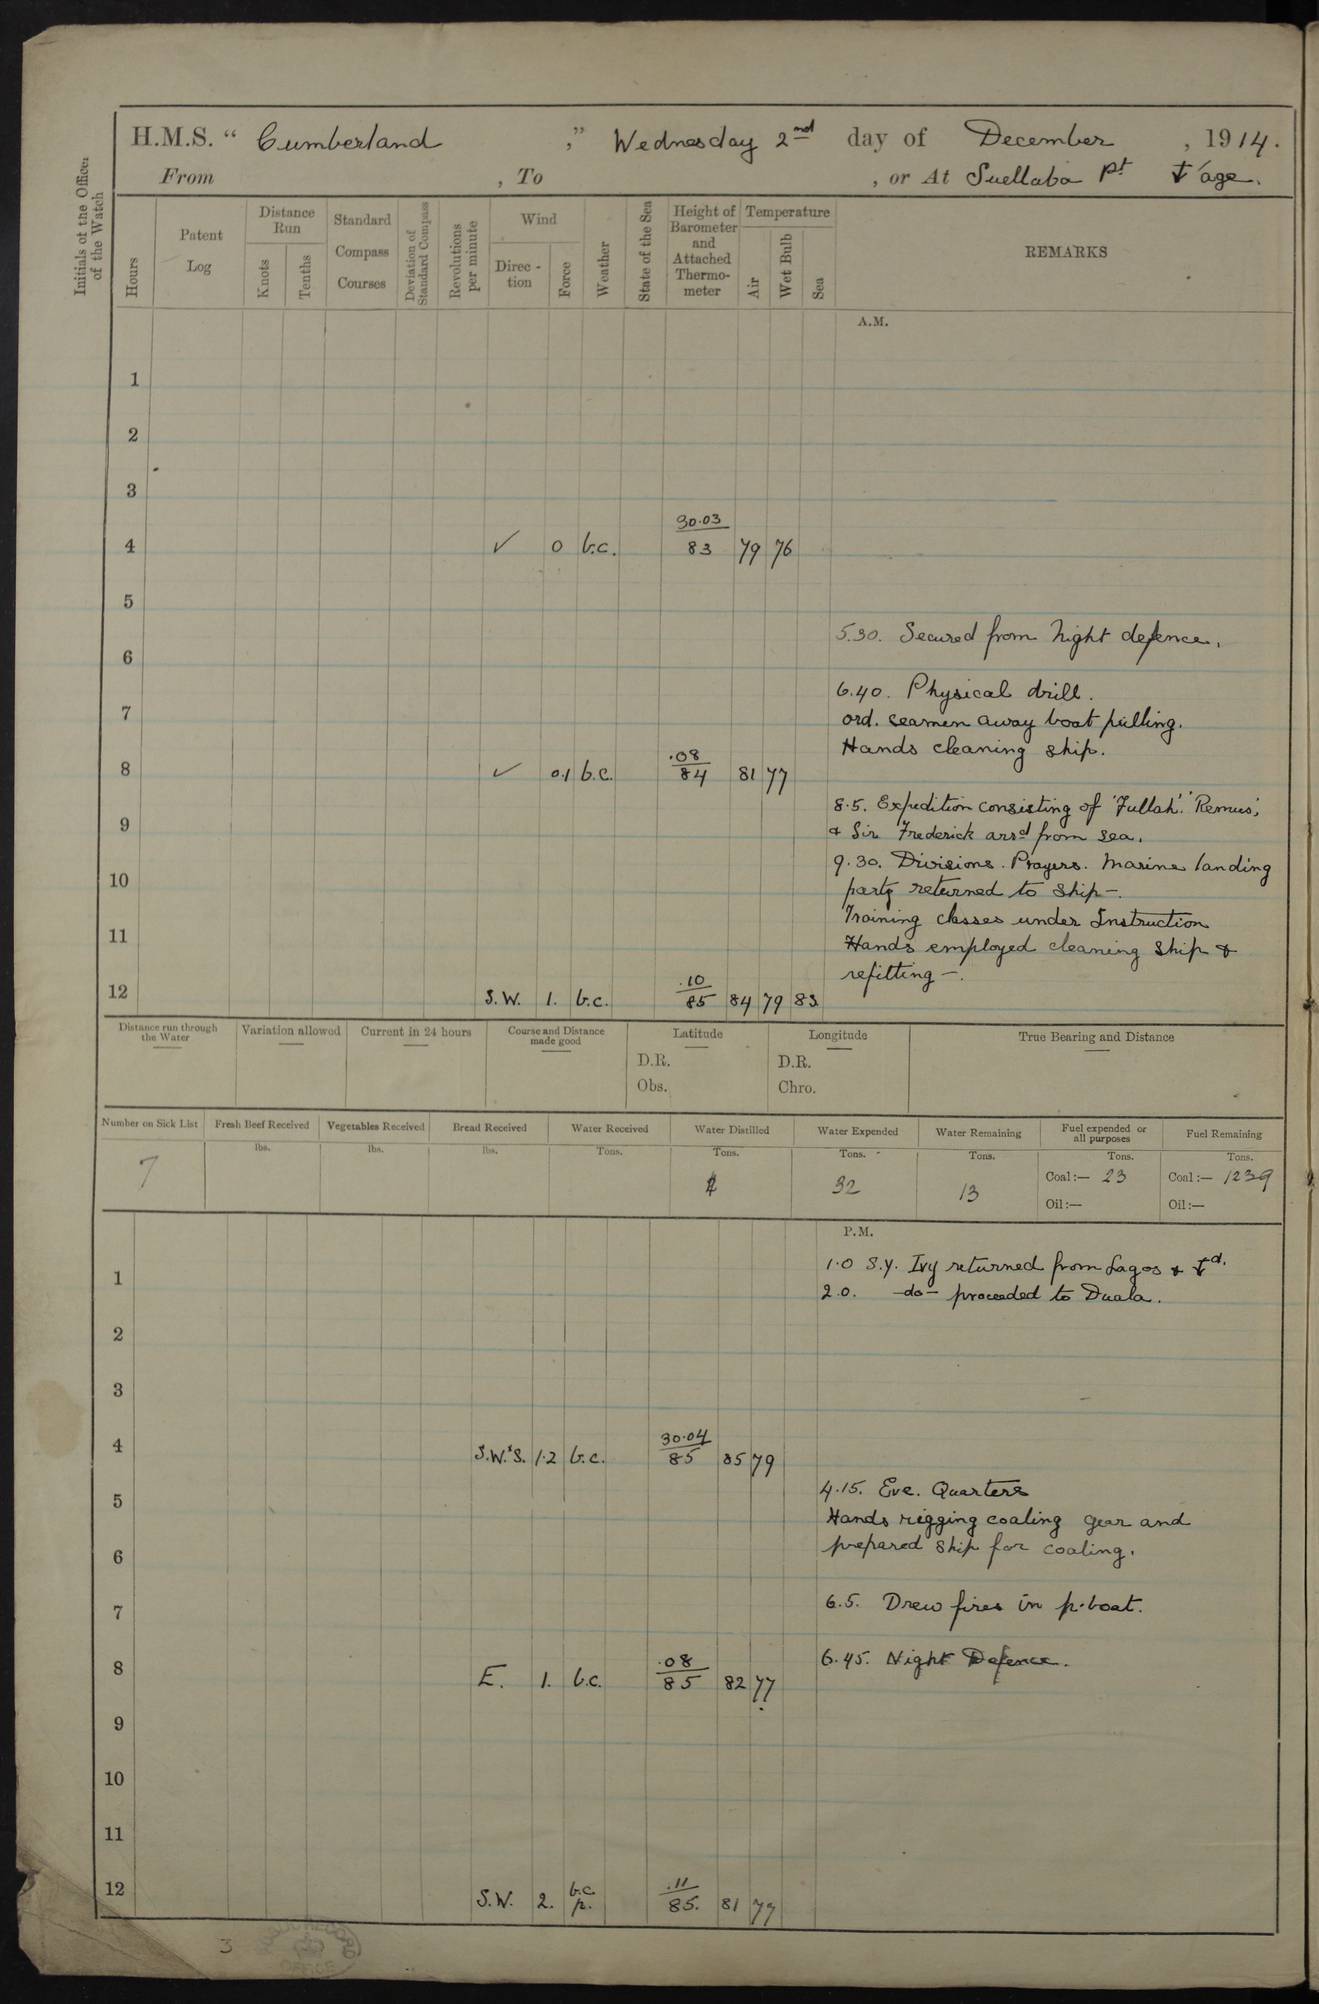 H.M.S. “ Cumberland ,” Wednesday 2nd day of December , 1914.
From , To , or At Suellaba Pt ⚓age.
Initials of the Officer of the Watch
Hours
Patent Log
Distance Run
Knots
Tenths
Standard Compass Courses
Deviation of Standard Compass
Revolutions per minute
Wind
Direc-tion
Force
Weather
State of the Sea
Height of Barometer and Attached Thermo-meter
Temperature
Air
Wet Bulb
Sea
REMARKS
A.M.
1
2
3
30.03
4 ✓ 0 b.c. 83 79 76
5
5.30. Secured from Night defence.
6
6.40. Physical drill.
7 ord. seamen away boat pulling.
Hands cleaning ship.
.08
8 ✓ 0.1 b.c. 84 81 77
8.5. Expedition consisting of 'Fullah'. 'Remus',
9 & Sir Frederick arrd from sea.
9.30. Divisions. Prayers. Marine landing
10 party returned to ship-.
Training classes under Instruction
11 Hands employed cleaning ship &
refitting-.
.10
12 S.W. 1. b.c. 85 84 79 83
Distance run through the Water
Variation allowed
Current in 24 hours
Course and Distance made good
Latitude
D.R.
Obs.
Longitude
D.R.
Chro.
True Bearing and Distance
Number on Sick List
7
Fresh Beef Received
lbs.
Vegetables Received
lbs.
Bread Received
lbs.
Water Received
Tons.
Water Distilled
Tons.
Water Expended
Tons.
32
Water Remaining
Tons.
13
Fuel expended or all purposes
Tons.
Coal:— 23
Oil:—
Fuel Remaining
Tons.
Coal:— 1239
Oil:—
P.M.
1.0 S.Y. Ivy returned from Lagos & ⚓d.
1
2.0. -do- proceeded to Duala.
2
3
30.04
4 S.W.xS. 1.2 b.c. 85 85 79
4.15. Eve. Quarters
5 Hands rigging coaling gear and
prepared ship for coaling.
6
6.5. Drew fires in p. boat.
7
6.45. Night Defence.
.08
8 E. 1. b.c. 85 82 77
9
10
11
.11
12 S.W. 2. b.c. p. 85. 81 77
3
RECORD
OFFICE